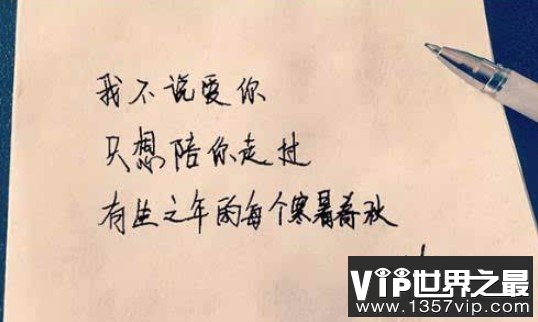 我不说爱你
只想陪你走过
有生之年的每个寒暑春秋
VIP世界之最
www.1357vip.com